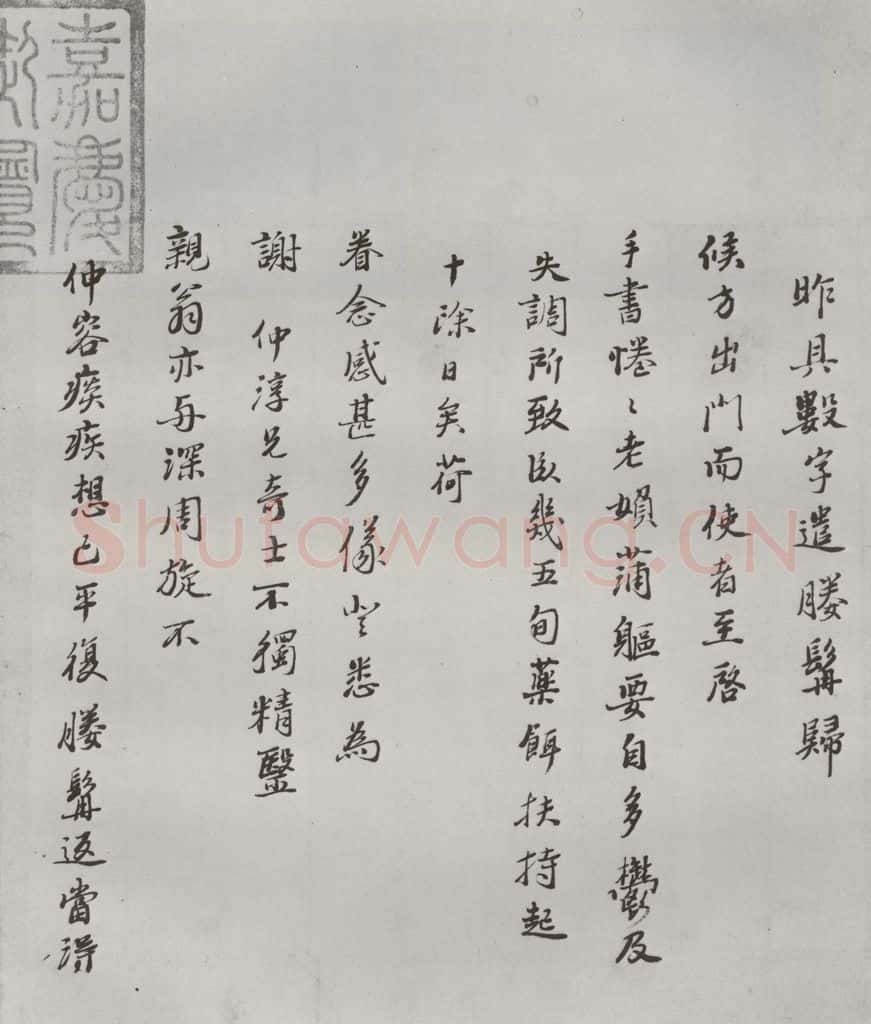 昨具數字遣媵髯歸
候方出門而使者至啓
手書惓〻老娯蒲軀要自多鬱及
失調所致臥幾五旬藥餌扶持起
十除日矣荷
眷念感甚多儀悉為
謝 仲淳兄奇士不獨精毉
親翁亦与深周旋不
仲容痰疾想已平復媵髯返當得
嘉慶
Shufawang.CN